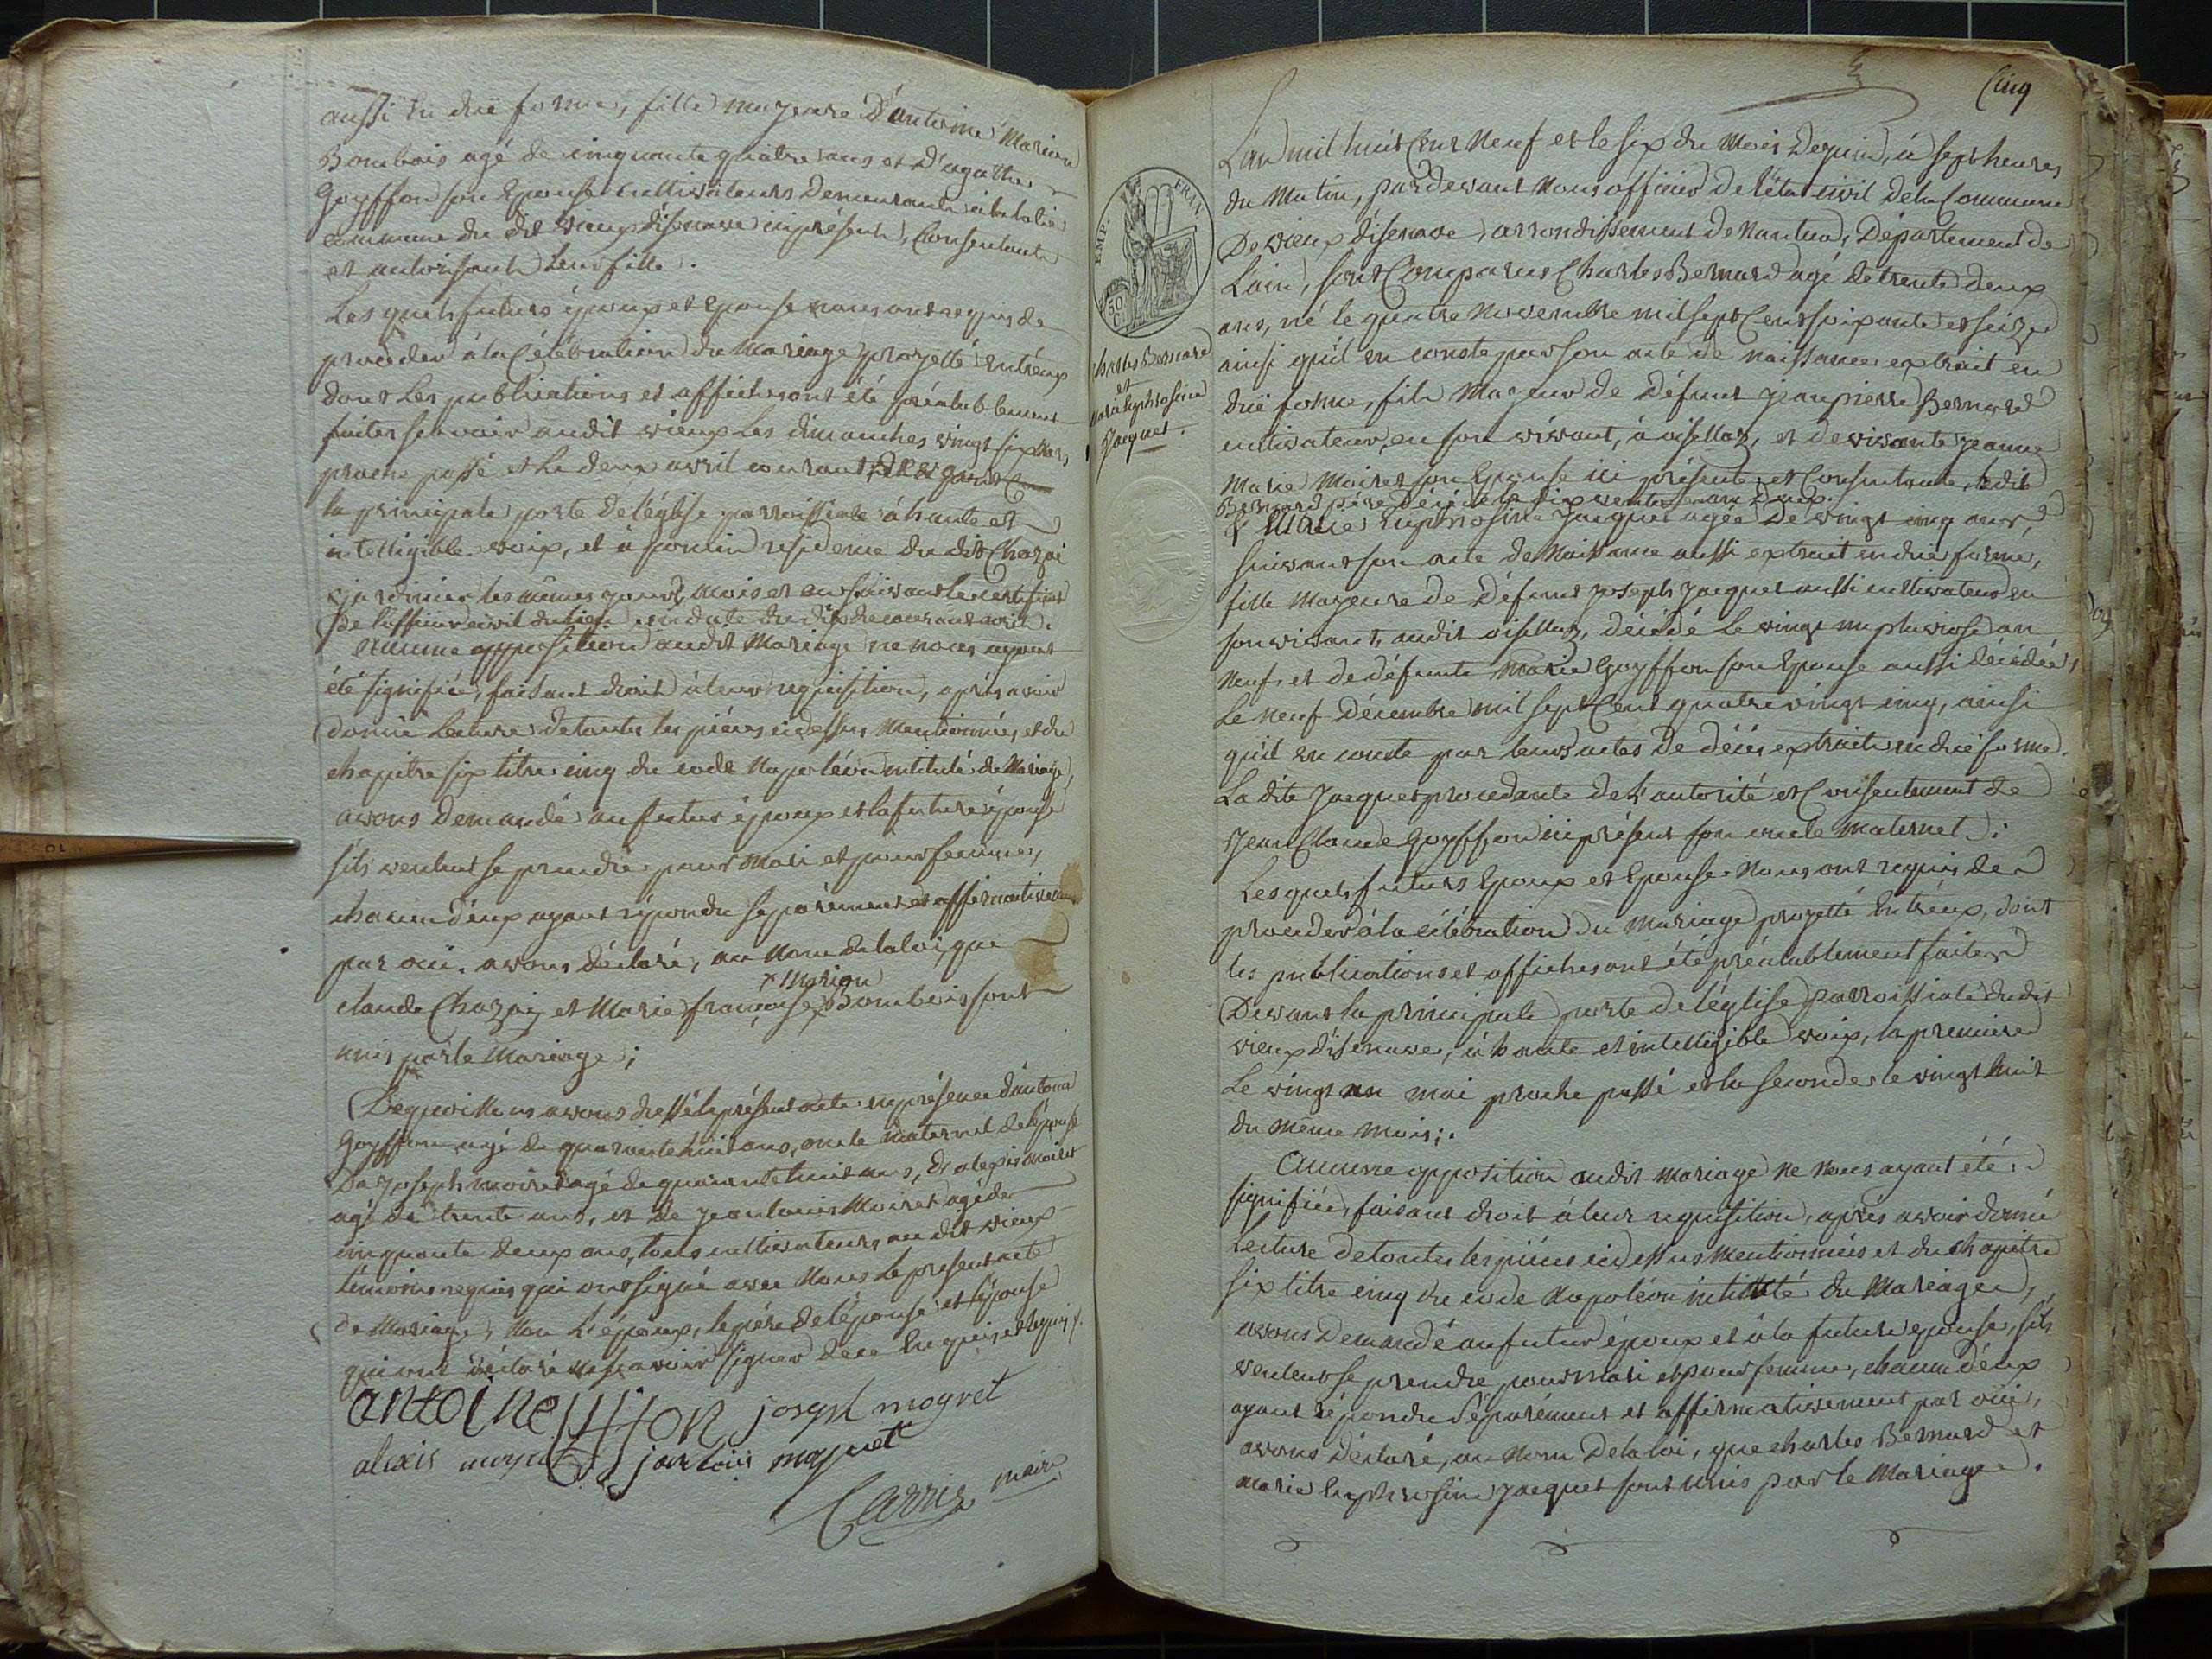 aussi en düe forme, fille majeure d'antoine Marion
Bombois agé de cinquante quatre ans et d'agathe
Goyffon son Epouse cultivateurs demeurants à
commune du dit vieux disenave ici présents, Consentants
et autorisants leur fille.
Les quels futurs époux et Epouse nous ont requis de
procéder à la Célébration du Mariage projetté entr'eux
dont les publications et affiches ont été préalablement
faites scavoir audit vieux les dimanches vingt six mars
proche passé et le deux avril courant devant
la principale porte de l'église parroissiale à haute et
intelligible voix, et à residence du dit Chazai
les mêmes jours, mois et an suivant le certificat
de l'officier civil du lieu en date du dix de courant avril.
Aucune opposition audit Mariage ne nous ayant
été signifiée, faisant droit à leur requisition, après avoir
donné Lecture de toutes les pièces ci dessus Mentionnées, et du
chapitre six titre cinq du code Napoléon intitulé du Mariage,
avons Demandé au futur époux et la future épouse
s'ils veulent se prendre pour Mari et pour femme,
chacun d'eux ayant répondu séparément et affirmativement
par oui. avons déclaré, au Nom de la loi, que
x Marion
claude Chazai et Marie françoise x Bombois sont
unis par le Mariage ;
De quoi Nous avons dressé le présent acte en présence d'antoine
Goyffon agé de quarante huit ans, oncle Maternel de l'épouse
De Joseph moiret agé de quarante huit ans, d'alexis moiret
agé de trente ans, et de jean louis Moiret agé de
cinquante deux ans, tous cultivateurs au dit vieux
témoins requis qui ont signé avec Nous le présent acte
de Mariage, Non l'époux, le père de l'épouse et l'épouse
qui ont déclaré ne savoir signer de ce Enquis et requis.
antoine joseph moyret
alexis moyret jean louis moyret
Carrier maire
Cinq
EMP. FRAN.
50 C.
Charles Bernard
et
marie Euphrosine
Jacquet.
L'an mil huit Cent Neuf et le six du Mois de juin, à sept heures
du Matin, pardevant Nous officier de l'état civil de la Commune
De vieux disenave, arrondissement de Nantua, Département de
L'ain, sont Comparus Charles Bernard agé de trente deux
ans, né le quatre Novembre mil sept Cent soixante et seize
ainsi qu'il en conste par son acte de naissance extrait en
düe forme, fils Majeur de Défunt jean pierre Bernard
cultivateur, en son vivant, à oisellaz, et de vivante jeanne
Marie Moiret son Epouse ici présente et Consentante, ledit
Bernard père décédé le six ventose an Deux.
& Marie Euphrosine Jacquet agée De vingt cinq ans,
suivant son acte de Naissance aussi extrait en düe forme,
fille Majeure de Défunt Joseph Jacquet aussi cultivateur en
son vivant, audit oisellaz, décédé le vingt un pluviose an
Neuf, et de défunte Marie Goyffon son Epouse aussi décédée
Le Neuf Décembre mil sept Cent quatre vingt cinq, ainsi
qu'il en conste par leurs actes de décès extraits en düe forme.
La dite Jacquet procedante de l'autorité et Consentement de
Jean Claude Goyffon ici présent son oncle Maternel :
Les quels futurs Epoux et Epouse Nous ont requis de
procéder à la célébration du Mariage projetté Entr'eux, dont
les publications et affiches ont été préalablement faites
Devant la principale porte de l'église parroissiale du dit
vieux disenave, à haute et intelligible voix, la premiere
Le vingt un mai proche passé et la seconde le vingt huit
du même mois ;.
Aucune opposition audit Mariage Ne Nous ayant été
signifiée, faisant droit à leur requisition, après avoir donné
Lecture de toutes les pièces ci dessus Mentionnées et du chapitre
six titre cinq du code Napoléon intitulé du Mariage,
avons Demandé au futur époux et à la future epouse, s'ils
veulent se prendre pour Mari et pour femme, chacun d'eux
ayant répondu Séparément et affirmativement par oüi,
avons déclaré, au Nom De la loi, que charles Bernard et
Marie Euphrosine Jacquet sont unis par le Mariage.